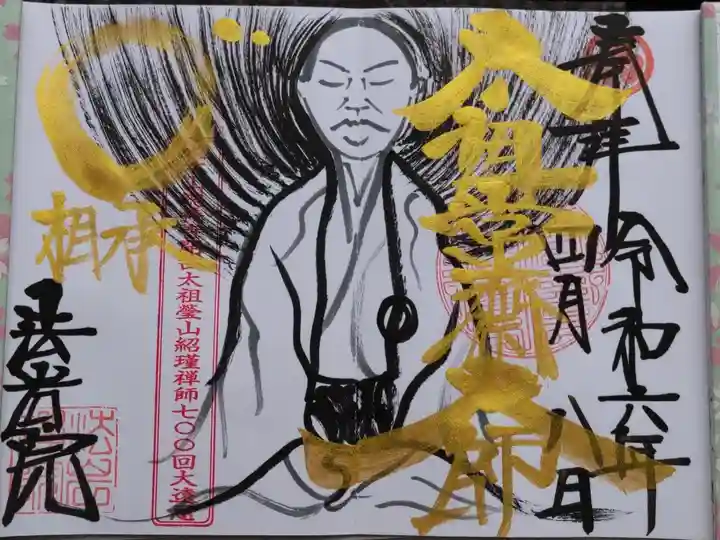 奉拝
令和六年
四月
八日
太祖常済大師
相承
太祖瑩山紹瑾禅師七〇〇回大遠忌
法光院